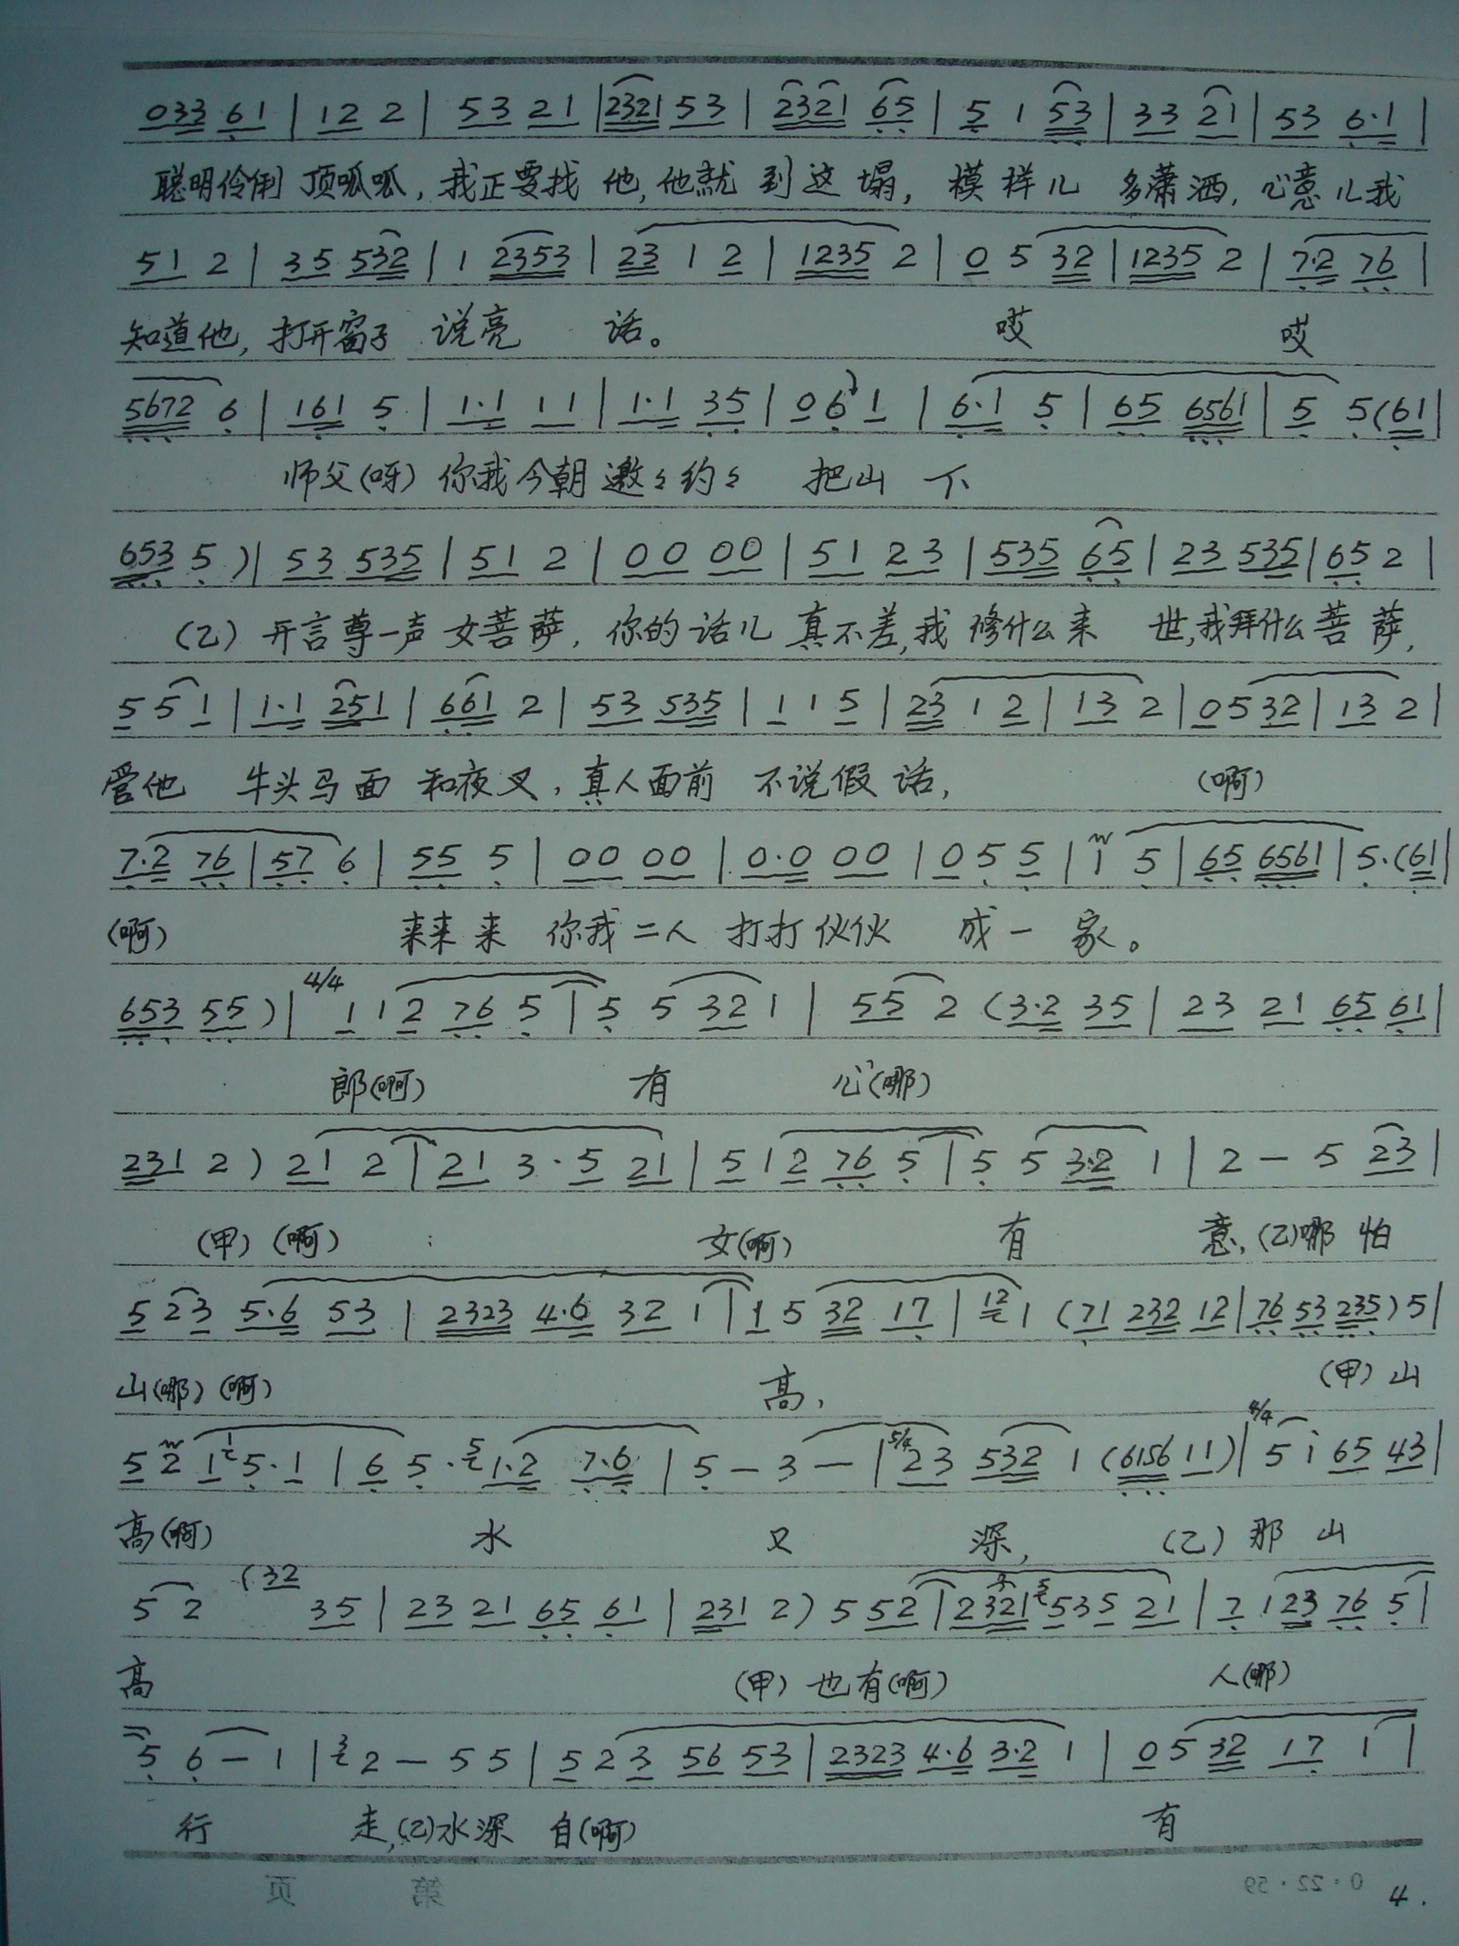 033 61 | 12 2 | 53 21 | 2321 53 | 2321 65 | 5 1 53 | 33 21 | 53 6·1 |
聪明伶俐 顶呱呱, 我正要找 他, 他就 到这塌, 模样儿 多潇洒, 心意儿我
51 2 | 35 532 | 1 2353 | 23 1 2 | 1235 2 | 0 5 32 | 1235 2 | 7·2 76 |
知道他, 打开窗子 说亮 话。 哎 哎
5672 6 | 161 5 | 1·1 11 | 1·1 35 | 0 6 1 | 6·1 5 | 65 6561 | 5 5(61 |
师父(呀) 你我今朝 邀々约々 把山 下
653 5 ) | 53 535 | 51 2 | 00 00 | 51 23 | 535 65 | 23 535 | 65 2 |
(乙) 开言尊一声 女菩萨, 你的话儿 真不差, 我 修什么来 世, 我拜什么菩 萨,
5 5 1 | 1·1 251 | 661 2 | 53 535 | 1 1 5 | 23 1 2 | 13 2 | 0 5 32 | 13 2 |
管他 牛头马面 和夜叉, 真人面前 不说假 话, (啊)
7·2 76 | 57 6 | 55 5 | 00 00 | 0·0 00 | 0 5 5 | 1 5 | 65 6561 | 5·(61 |
(啊) 来来来 你我二人 打打伙伙 成一 家。
653 55 ) | 4/4 1 1 2 76 5 | 5 5 32 1 | 55 2 (3·2 35 | 23 21 65 61 |
郎(啊) 有 心(哪)
231 2 ) 21 2 | 21 3·5 21 | 5 1 2 76 5 | 5 5 3·2 1 | 2 — 5 23 |
(甲) (啊) 女(啊) 有 意, (乙)哪 怕
5 2 3 5·6 53 | 2323 4·6 32 1 | 1 5 32 17 | 12 1 (71 232 12 | 76 53 235 ) 5 |
山(哪) (啊) 高, (甲) 山
5 2 1 1 5·1 | 6 5· 5 1·2 7·6 | 5 — 3 — | 5/4 23 532 1 (6156 11 ) | 4/4 5 i 65 43 |
高(啊) 水 又 深, (乙) 那 山
5 2 (32 35 | 23 21 65 61 | 231 2 ) 5 52 | 2321 5 535 21 | 7 1 23 76 5 |
高 (甲) 也有(啊) 人(哪)
5 6 — 1 | 3 2 — 5 5 | 5 2 3 56 53 | 2323 4·6 3·2 1 | 0 5 32 17 1 |
行 走, (乙)水深 自(啊) 有
第 页
0·22·59
4.